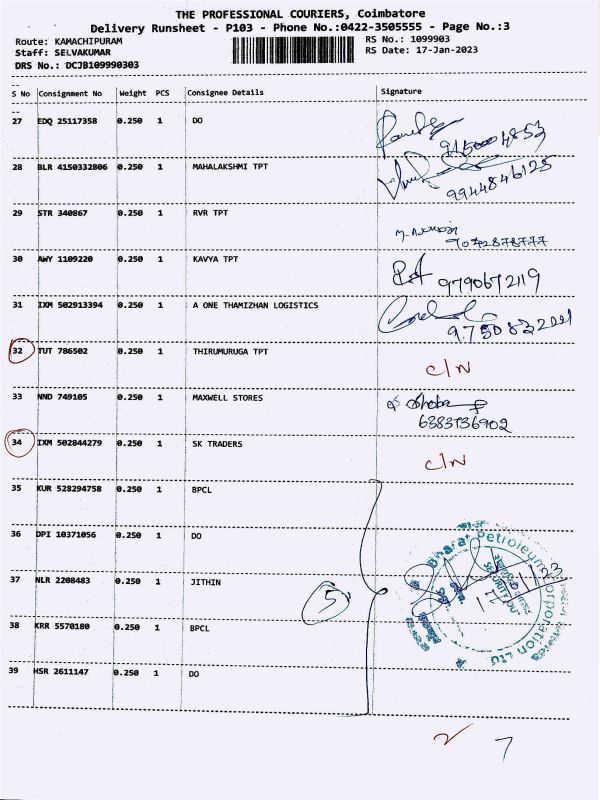 THE PROFESSIONAL COURIERS, Coimbatore
Delivery Runsheet - P103 - Phone No.:0422-3505555 - Page No.:3
Route: KAMACHIPURAM RS No.: 1099903
Staff: SELVAKUMAR RS Date: 17-Jan-2023
DRS No.: DCJB109990303
S No Consignment No Weight PCS Consignee Details Signature
27 EDQ 25117358 0.250 1 DO
28 BLR 4150332806 0.250 1 MAHALAKSHMI TPT
9944846125
29 STR 340867 0.250 1 RVR TPT
30 AWY 1109220 0.250 1 KAVYA TPT
9790672119
31 IXM 502913394 0.250 1 A ONE THAMIZHAN LOGISTICS
32 TUT 786502 0.250 1 THIRUMURUGA TPT C/N
33 NND 749105 0.250 1 MAXWELL STORES
6383736902
34 IXM 502844279 0.250 1 SK TRADERS C/N
35 KUR 528294758 0.250 1 BPCL
36 DPI 10371056 0.250 1 DO
37 NLR 2208483 0.250 1 JITHIN
5
38 KRR 5570180 0.250 1 BPCL
39 HSR 2611147 0.250 1 DO
Bharat Petroleum Corporation Ltd
2 7